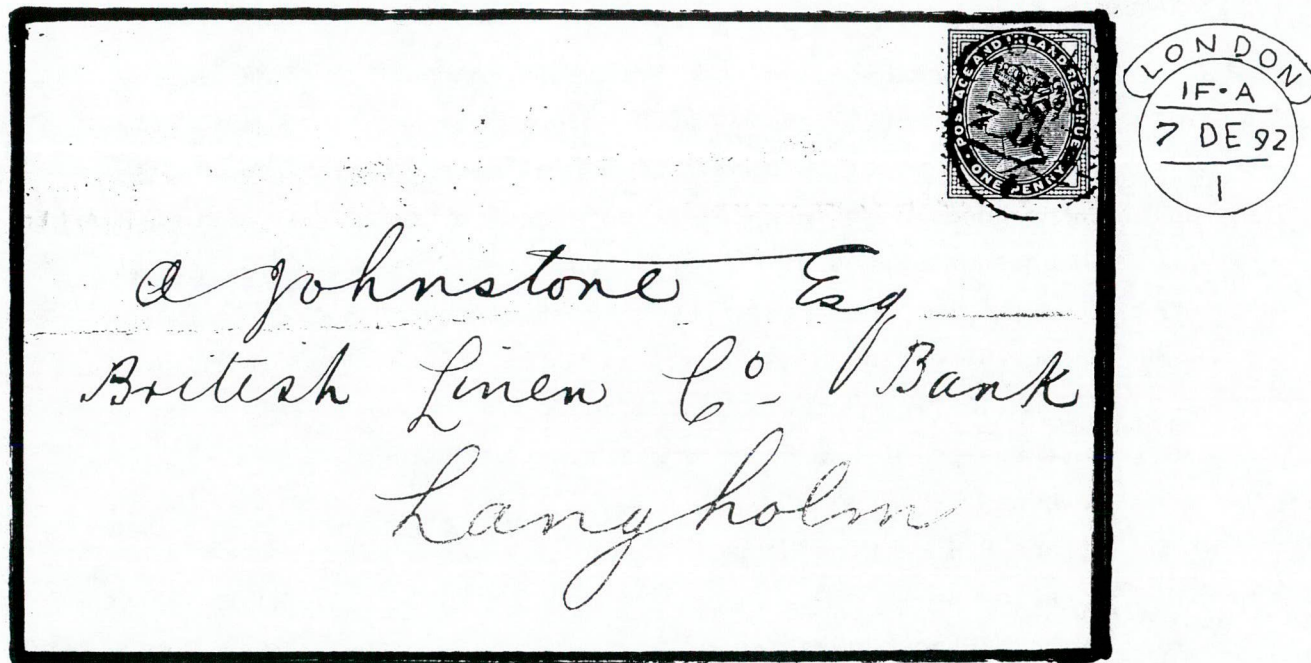 POSTAGE AND INLAND REVENUE
ONE PENNY
LONDON
1F·A
7 DE 92
1
a Johnstone Esq
British Linen Co Bank
Langholm